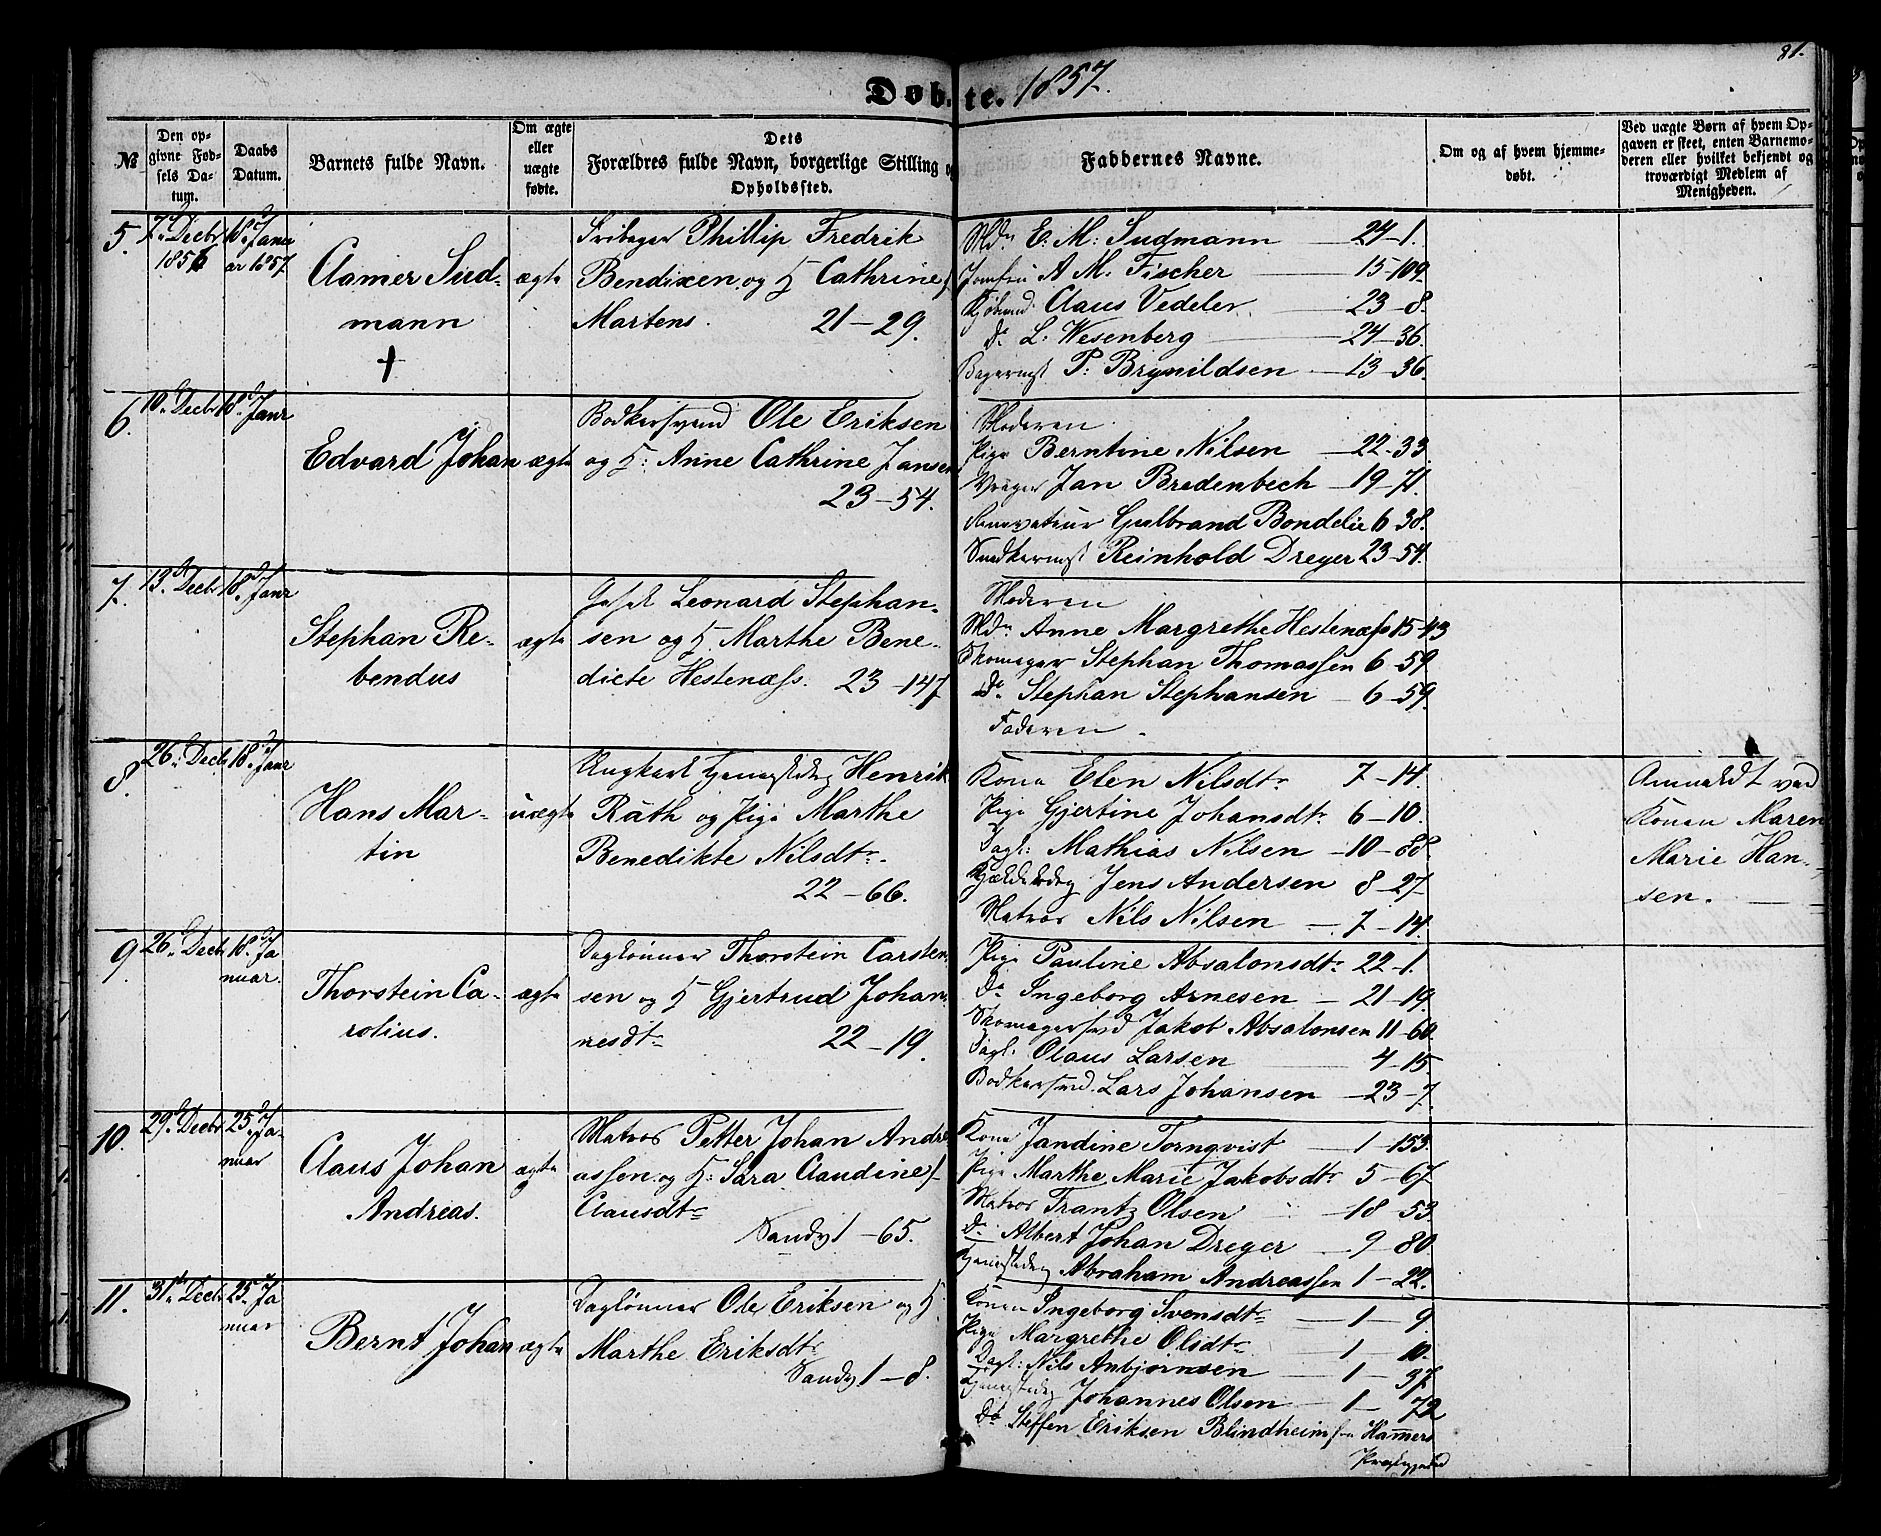 81.
Døbte. 1857.
№
Den op-
givne Fød-
sels Da-
tum.
Daabs
Datum.
Barnets fulde Navn.
Om ægte
eller
uægte
fødte.
Dets
Forældres fulde Navn, borgerlige Stilling og
Opholdssted.
Faddernes Navne.
Om og af hvem hjemme-
døbt.
Ved uægte Børn af hvem Op-
gaven er skeet, enten Barnemo-
deren eller hvilket bekjendt og
troværdigt Medlem af
Menigheden.
5.
7. Decbr
1856
18. Janu
ar 1857.
Clamer Sud-
mann
+
ægte
Phillip Fredrik
Bendixen og H Cathrine
Martens. 21-29.
Mdm E. M: Sudmann 24-1.
Jomfru A M. Fischer 15-109.
Kjøbmd. Claus Vedeler 23-8.
Do L: Wesenberg 24-36.
Bagermst P: Brynildsen 13-36.
6.
10. Decbr
18. Janr
Edvard Johan
ægte
Bødkersvend Ole Eriksen
og H: Anne Cathrine Jansen
23-54.
Moderen.
Pige Berntine Nilsen 22-33.
Vræger Jan Bredenbech 19-71.
Gulbrand Bondelie 6-38.
Snedkermst Reinhold Dreyer 23-54.
7.
13. Decbr
18. Janr
Stephan Re-
bendus
ægte
Leonard Stephan-
sen og H. Marthe Bene-
dicte Hestenæss. 23-147
Moderen
Mdm Anne Margrethe Hestenæss 15-43
Skomager Stephan Thomassen 6-59.
Do Stephan Stephansen 6-59.
Faderen.
8.
26. Decbr
18. Janr
Hans Mar-
tin
uægte
Ungkarl Henrik
Rath og Pige Marthe
Benedikte Nilsdtr.
22-66.
Kone Elen Nilsdtr 7-14.
Pige Gjertine Johansdtr 6-10.
Dagl: Mathias Nilsen 10-88.
Jens Andersen 8-27
Matros Nils Nilsen 7-14.
Anmeldt ved
Konen Maren
Marie Han-
sen.
9
26. Decbr
18. Ja
nuar.
Thorstein Ca-
rolius.
ægte
Daglønner Thorstein Carsten-
sen og H Gjertrud Johan-
nesdtr 22-19.
Pige Pauline Absalonsdtr 22-1.
Do Ingeborg Arnesen 21-19.
Skomagersvd Jakob Absalonsen 11-60.
Dagl: Olaus Larsen 4-15
Bødkersvd. Lars Johansen 23-7.
10.
29. Decbr
25. Ja-
nuar
Claus Johan
Andreas.
ægte
Matros Petter Johan Andre
assen og H: Sara Claudine
Clausdtr
Sandv 1-65.
Kone Jandine Tornqvist 1-153.
Pige Marthe Marie Jakobsdtr 5-67
Matros Frantz Olsen 18-53.
Do Albert Johan Dreyer 9-80
Abraham Andreassen 1-22.
11.
31te Decbr
25. Ja
nuar
Bernt Johan
ægte
Daglønner Ole Eriksen og H.
Marthe Eriksdtr
Sandv 1-8.
Konen Ingeborg Svensdtr 1-9.
Pige Margrethe Olsdtr 1-10.
Dagl: Nils Anbjørnsen 1-37.
Johannes Olsen 1-72
Do Steffen Eriksen Blindheim fra Hammers
Præstegjeld